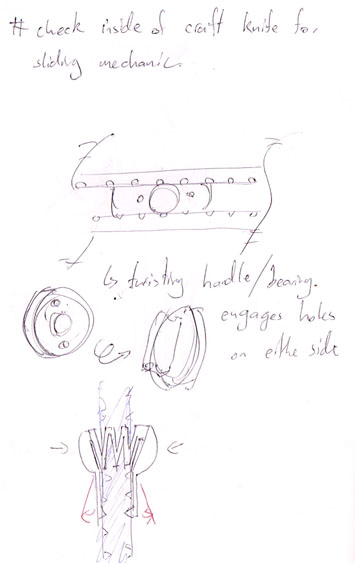 # check inside of craft knife for
sliding mechanic.
↳ twisting handle/bearing.
engages holes
on eithe side